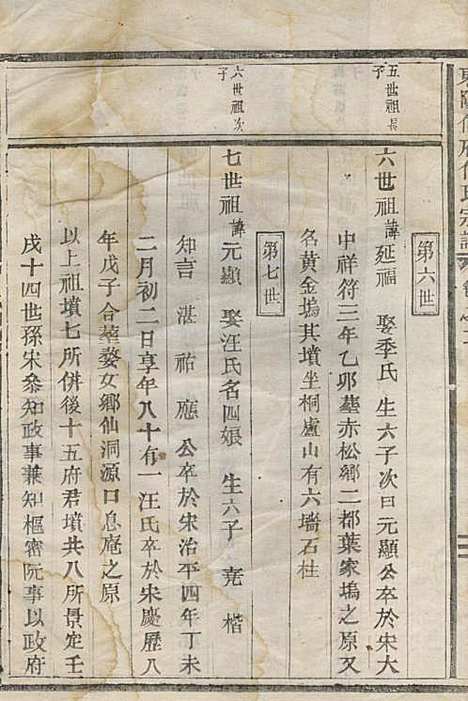 第六世
五世祖長子
六世祖諱延福　娶季氏　生六子次曰元顯公卒於宋大
中祥符三年乙卯塟赤松鄉二都葉家塢之原又
名黃金塢其墳坐桐廬山有六墻石柱
第七世
六世祖次子
七世祖諱元顯　娶汪氏名四娘　生六子　堯　楷
知言　湛　祐　應　公卒於宋治平四年丁未
二月初二日享年八十有一汪氏卒於宋慶歷八
年戊子合塟婺女鄉仙洞源口息庵之原
以上祖墳七所併後十五府君墳共八所景定壬
戌十四世孫宋叅知政事兼知樞宻阮事以政府